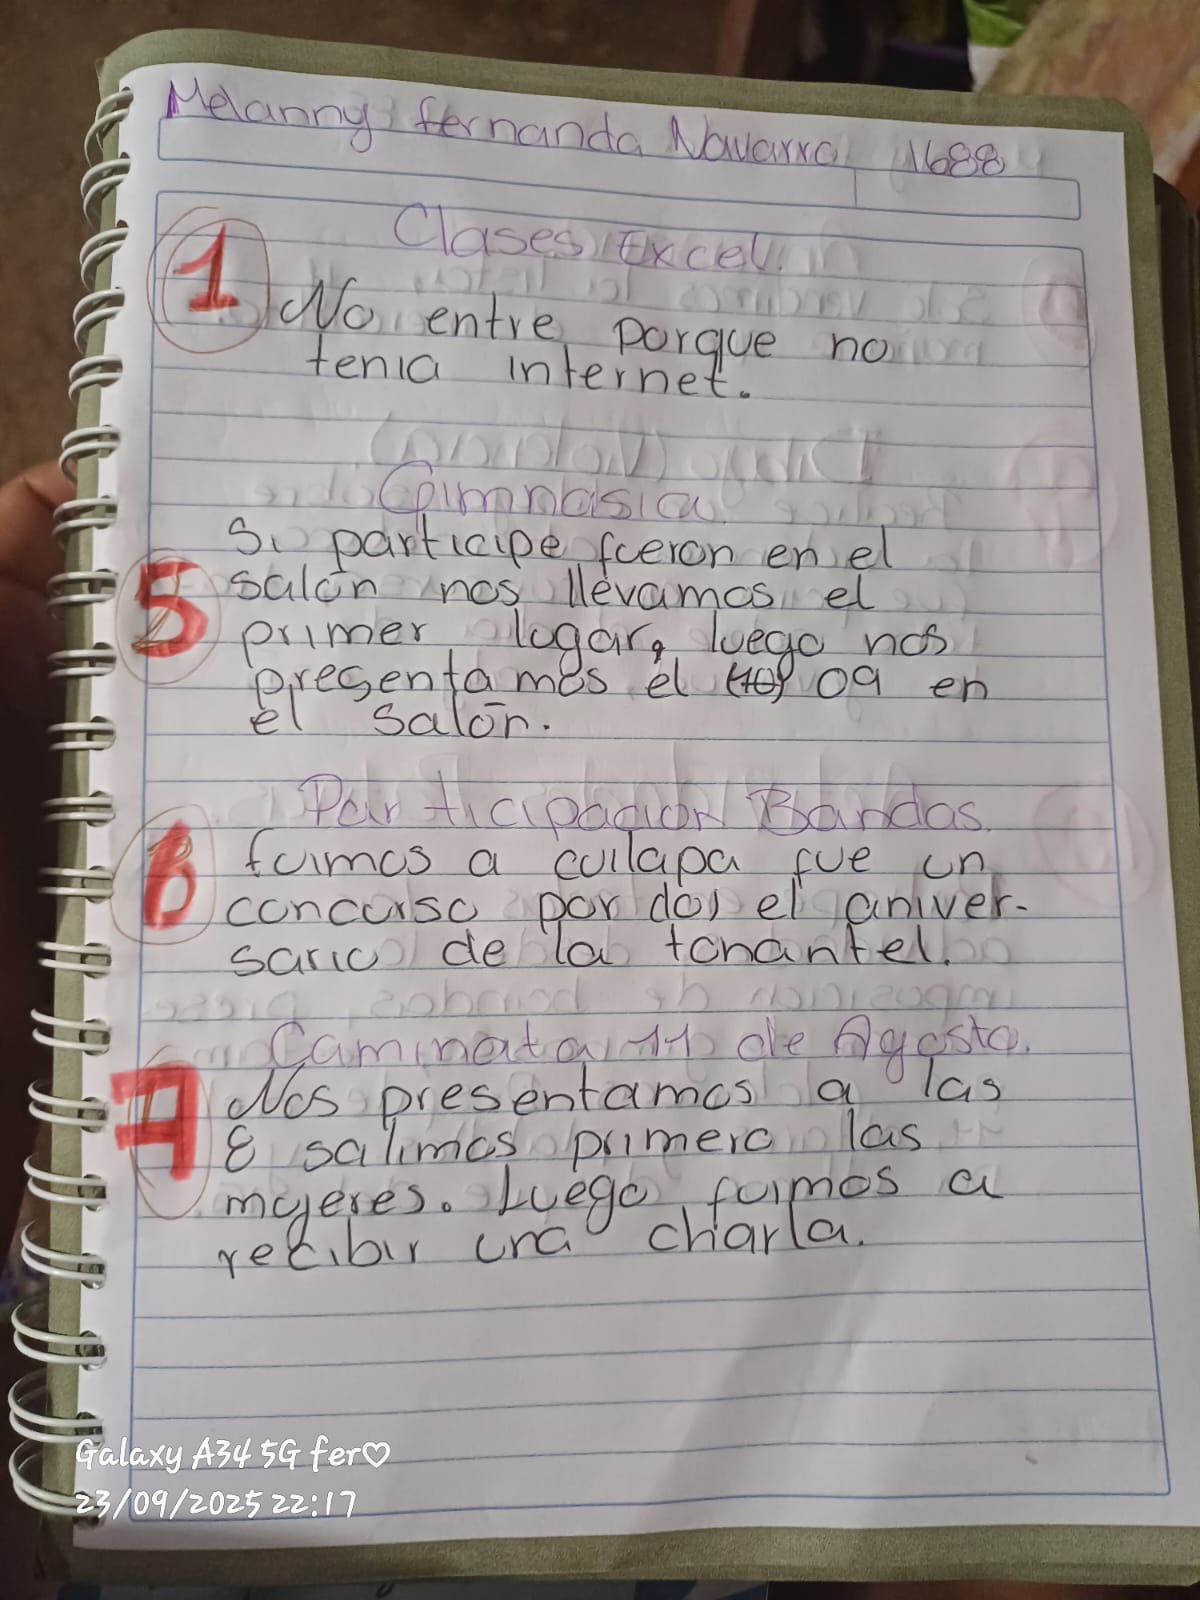 Melanny fernanda Navarro 1688
Clases Excel.
1
No entre porque no
tenia internet.
Gimnasia
Si participe fueron en el
5
salón nos llevamos el
primer lugar, luego nos
presentamos el (10) 09 en
el salón.
Participacion Bandas.
6
fuimos a cuilapa fue un
concurso por do) el aniver-
sario de la tonantel.
Caminata 11 de Agosto.
7
Nos presentamos a las
8 salimos primero las
mujeres. Luego fuimos a
recibir una charla.
Galaxy A34 5G fer♡
23/09/2025 22:17